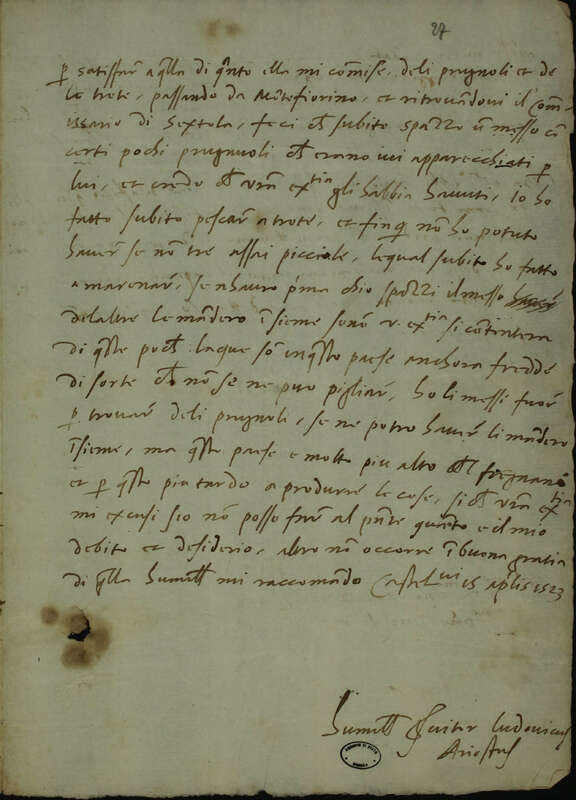 27
p satisfar a q̃lla di q̃nto ella mi com̃ise, deli prugnoli et de
le trote, passando da Mõtefiorino, et ritrovandovi il Com̃-
issario di Sextola, feci ch subito spazzò ũ messo cũ
certi pochi prugnuoli ch erano ivi apparecchiati p
lui, et credo ch vrã ex.tia gli habbia havuti, Io ho
fatto subito pescar a trote, et finq̃ nõ ho potuto
haver se nõ tre assai picciole, lequal subito ho fatto
amarenar, se nhauro p̃ma chio spazzi il messo
delaltre le mãdero ĩsieme se nõ v. ex.tia si cõtentera
di q̃ste poch laque sõ in q̃sto paese anchora fredde
di sorte ch nõ se ne puo pigliar, ho li messi fuor
p trovar deli prugnoli, se ne potro haver li mãdero
ĩsieme, ma q̃sto paese e molto piu alto ch Fregnano
et p q̃sto piu tardo a produrre le cose, si ch vrã ex.tia
mi excusi s'io nõ posso far al p̃nte quãto e il mio
debito et desiderio, altro nõ occorre ĩ buona gratia
di q̃lla humilm̃ mi raccomando Castel.vi 15 aplis 1523
humil Servitor Ludovicus
Ariostus